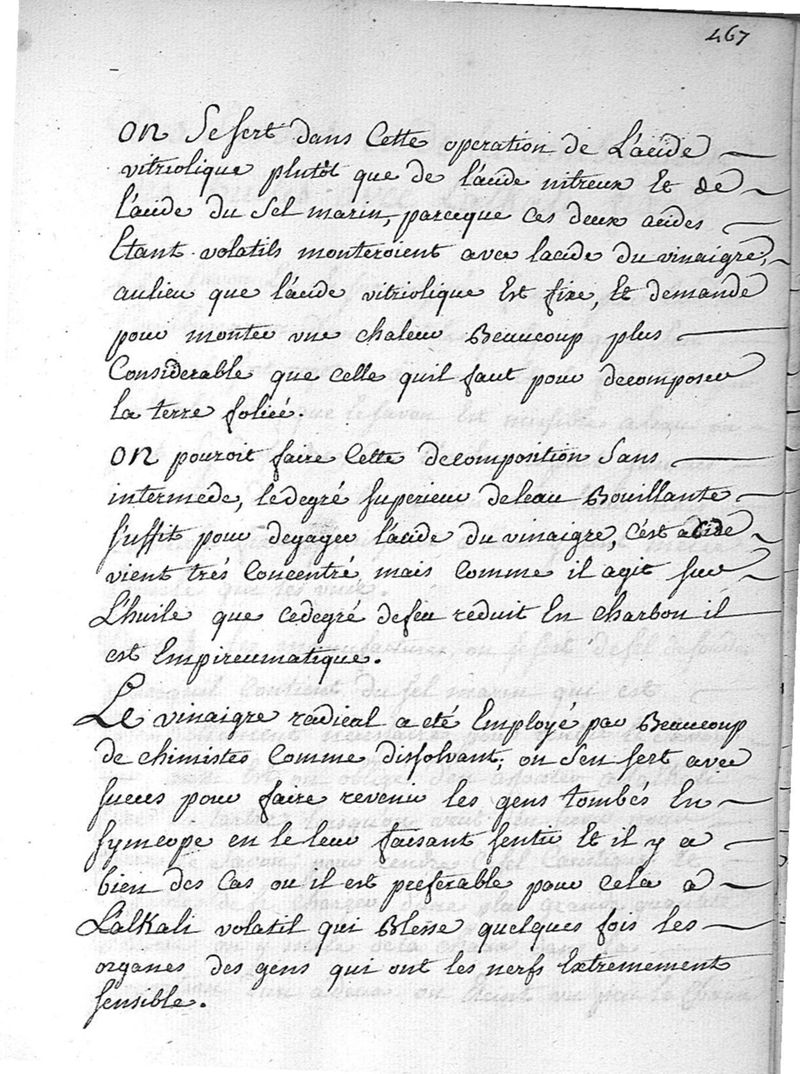 467
on Se sert dans Cette operation de L'acide
vitriolique plutôt que de l'acide nitreux Et de
l'acide du Sel marin, parceque ces deux acides
Etant volatils monteroient avec lacide du vinaigre,
aulieu que l'acide vitriolique Est fixe, Et demande
pour monter une chaleur Beaucoup plus
Considerable que celle quil faut pour decomposer
la terre foliée.
on pouroit faire Cette decomposition Sans
intermede, ledegré superieur deleau Bouillante
suffit pour degager l'acide du vinaigre, C'est acide
vient trés Concentré mais comme il agit sur
L'huile que cedegré defeu reduit En charbon il
est Empireumatique.
Le vinaigre radical a eté Employé par Beaucoup
de chimistes Comme dissolvant; on s'en sert avec
succes pour faire revenir les gens tombés En
syncope en le leur faisant sentir Et il y a
bien des Cas ou il est preferable pour cela a
L'alkali volatil qui Blesse quelques fois les
organes des gens qui ont les nerfs Extremement
sensible.